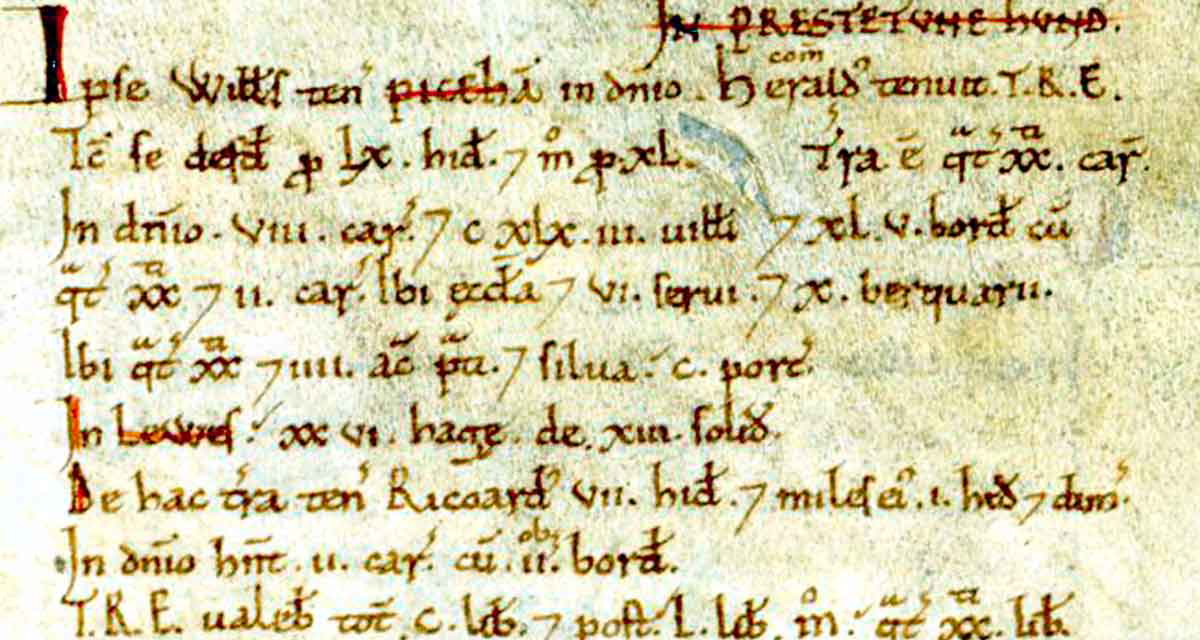 IN PRESTETUNE HUND.
Ipse Willꝉs ten̄ PICEHĀ in dn̄io. Herald com̄ tenuit. T.R.E.
Tc̄ se defd̄ ꝓ Lx. hid̄. ⁊ m̊ ꝓ xL. T̄ra ē qͣt ˢxxᵗⁱ. car̄.
In dn̄io. viii. car̄. ⁊ c xlx. iii. uilꝉi ⁊ xl. v. bord̄ cū
qͣt ˢxxᵗⁱ ⁊ ii. car̄. Ibi æccl̄a ⁊ vi. serui. ⁊ x. berquarii.
Ibi qͣt ˢxxᵗⁱ ⁊ iiii. ac̄ p̄ti. ⁊ silua. c. porc̄.
In Lewes. xx vi. hagę. de. xiii. solid̄.
De hac t̄ra ten̄ Ricoard̄ vii. hid̄. ⁊ miles ei᷒. i. hid̄ ⁊ dim̄.
In dn̄io hn̄t. ii. car̄. cū. ii. ob᷒ bord̄.
T.R.E. ualeb̄ tot̄ c. lib̄. ⁊ post. L. lib̄. m̊. qͣt ˢxxᵗⁱ. lib̄.